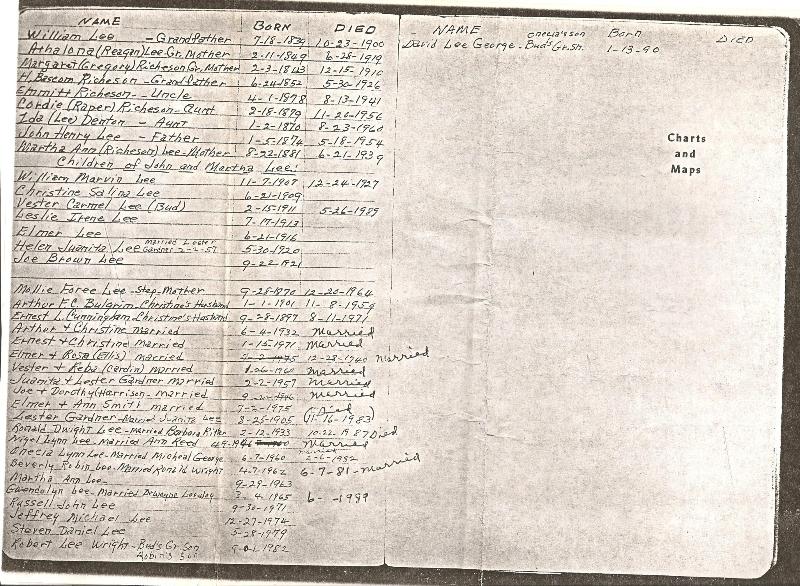 NAME BORN DIED
William Lee - Grandfather 7-18-1839 10-23-1900
Athalona (Reagan) Lee Gr. Mother 2-11-1849 6-28-1919
Margaret (Gregory) Richeson Gr. Mother 2-3-1843 12-15-1910
H. Bascom Richeson - Grandfather 6-24-1852 5-30-1926
Emmitt Richeson - Uncle 4-1-1878 8-13-1941
Cordie (Raper) Richeson - Aunt 2-18-1879 11-20-1956
Ida (Lee) Denton - Aunt 1-2-1870 8-23-1960
John Henry Lee - Father 1-5-1874 5-18-1954
Martha Ann (Richeson) Lee - Mother 8-22-1881 6-21-1939
Children of John and Martha Lee:
William Marvin Lee 11-7-1907 12-24-1927
Christine Salina Lee 6-21-1909
Vester Carmel Lee (Bud) 2-15-1911 5-26-1989
Leslie Irene Lee 7-17-1913
Elmer Lee 6-21-1916
Helen Juanita Lee Married Lester Gardner 2-2-57 5-30-1920
Joe Brown Lee 9-22-1921
Mollie Foree Lee - Step-Mother 9-25-1870 12-20-1964
Arthur F.C. Bulgrim - Christine's Husband 1-1-1901 11-8-1959
Ernest L. Cunningham - Christine's Husband 9-28-1897 8-11-1971
Arthur & Christine married 6-4-1932 Married
Ernest & Christine Married 1-15-1971 Married
Elmer & Rosa (Ellis) married 12-28-1940 Married
Vester & Reba (Cardin) married Married
Juanita & Lester Gardner married 2-2-1957 Married
Joe & Dorothy (Harrison - married Married
Elmer & Ann Smith married 7-2-1975 (Died
Lester Gardner - Married Juanita Lee 8-25-1905 11-16-1983)
Ronald Dwight Lee - Married Barbara Ritter 2-12-1933 10-22-1987 Died
Nigel Lynn Lee - Married Ann Reed 4-9-1946 Married
Onecia Lynn Lee - Married Micheal George 6-7-1960 married 2-6-1982
Beverly Robin Lee - Married Ronald Wright 4-7-1962 6-7-81 - Married
Martha Ann Lee 9-29-1963
Gwendolyn Lee - Married Dewayne 3-4-1965 6- -1989
Russell John Lee 9-30-1971
Jeffrey Michael Lee 12-27-1974
Steven Daniel Lee 5-28-1979
Robert Lee Wright - Bud's Gr. Son Robin's Son 1982
NAME Born DIED
Onecia's son
David Lee George - Bud's Gr. Sn. 1-13-90
Charts
and
Maps